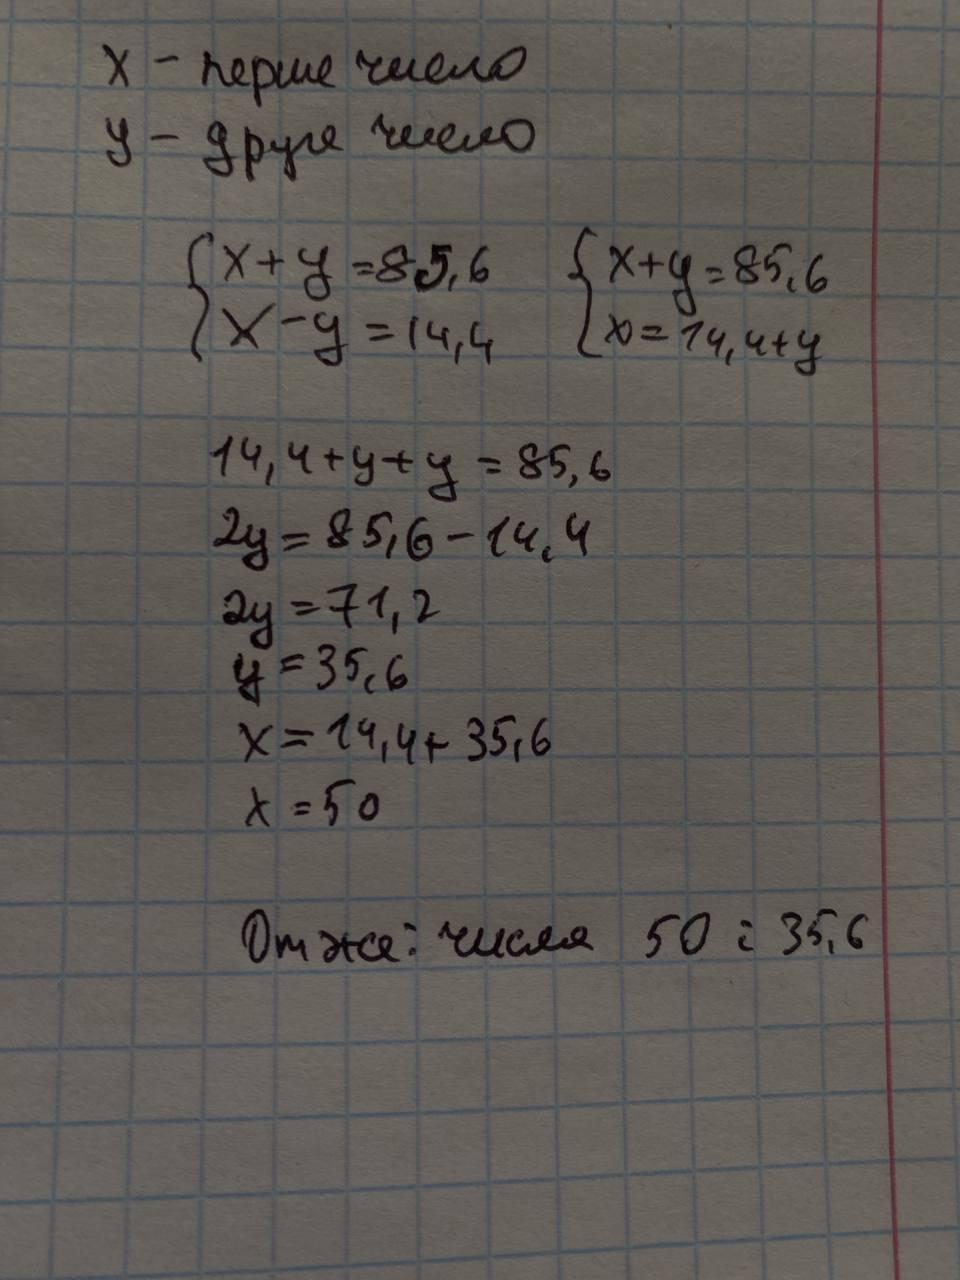 x - перше число
y - друге число
{ x + y = 85,6 { x + y = 85,6
{ x - y = 14,4 { x = 14,4 + y
14,4 + y + y = 85,6
2y = 85,6 - 14,4
2y = 71,2
y = 35,6
x = 14,4 + 35,6
x = 50
Отже: числа 50 і 35,6